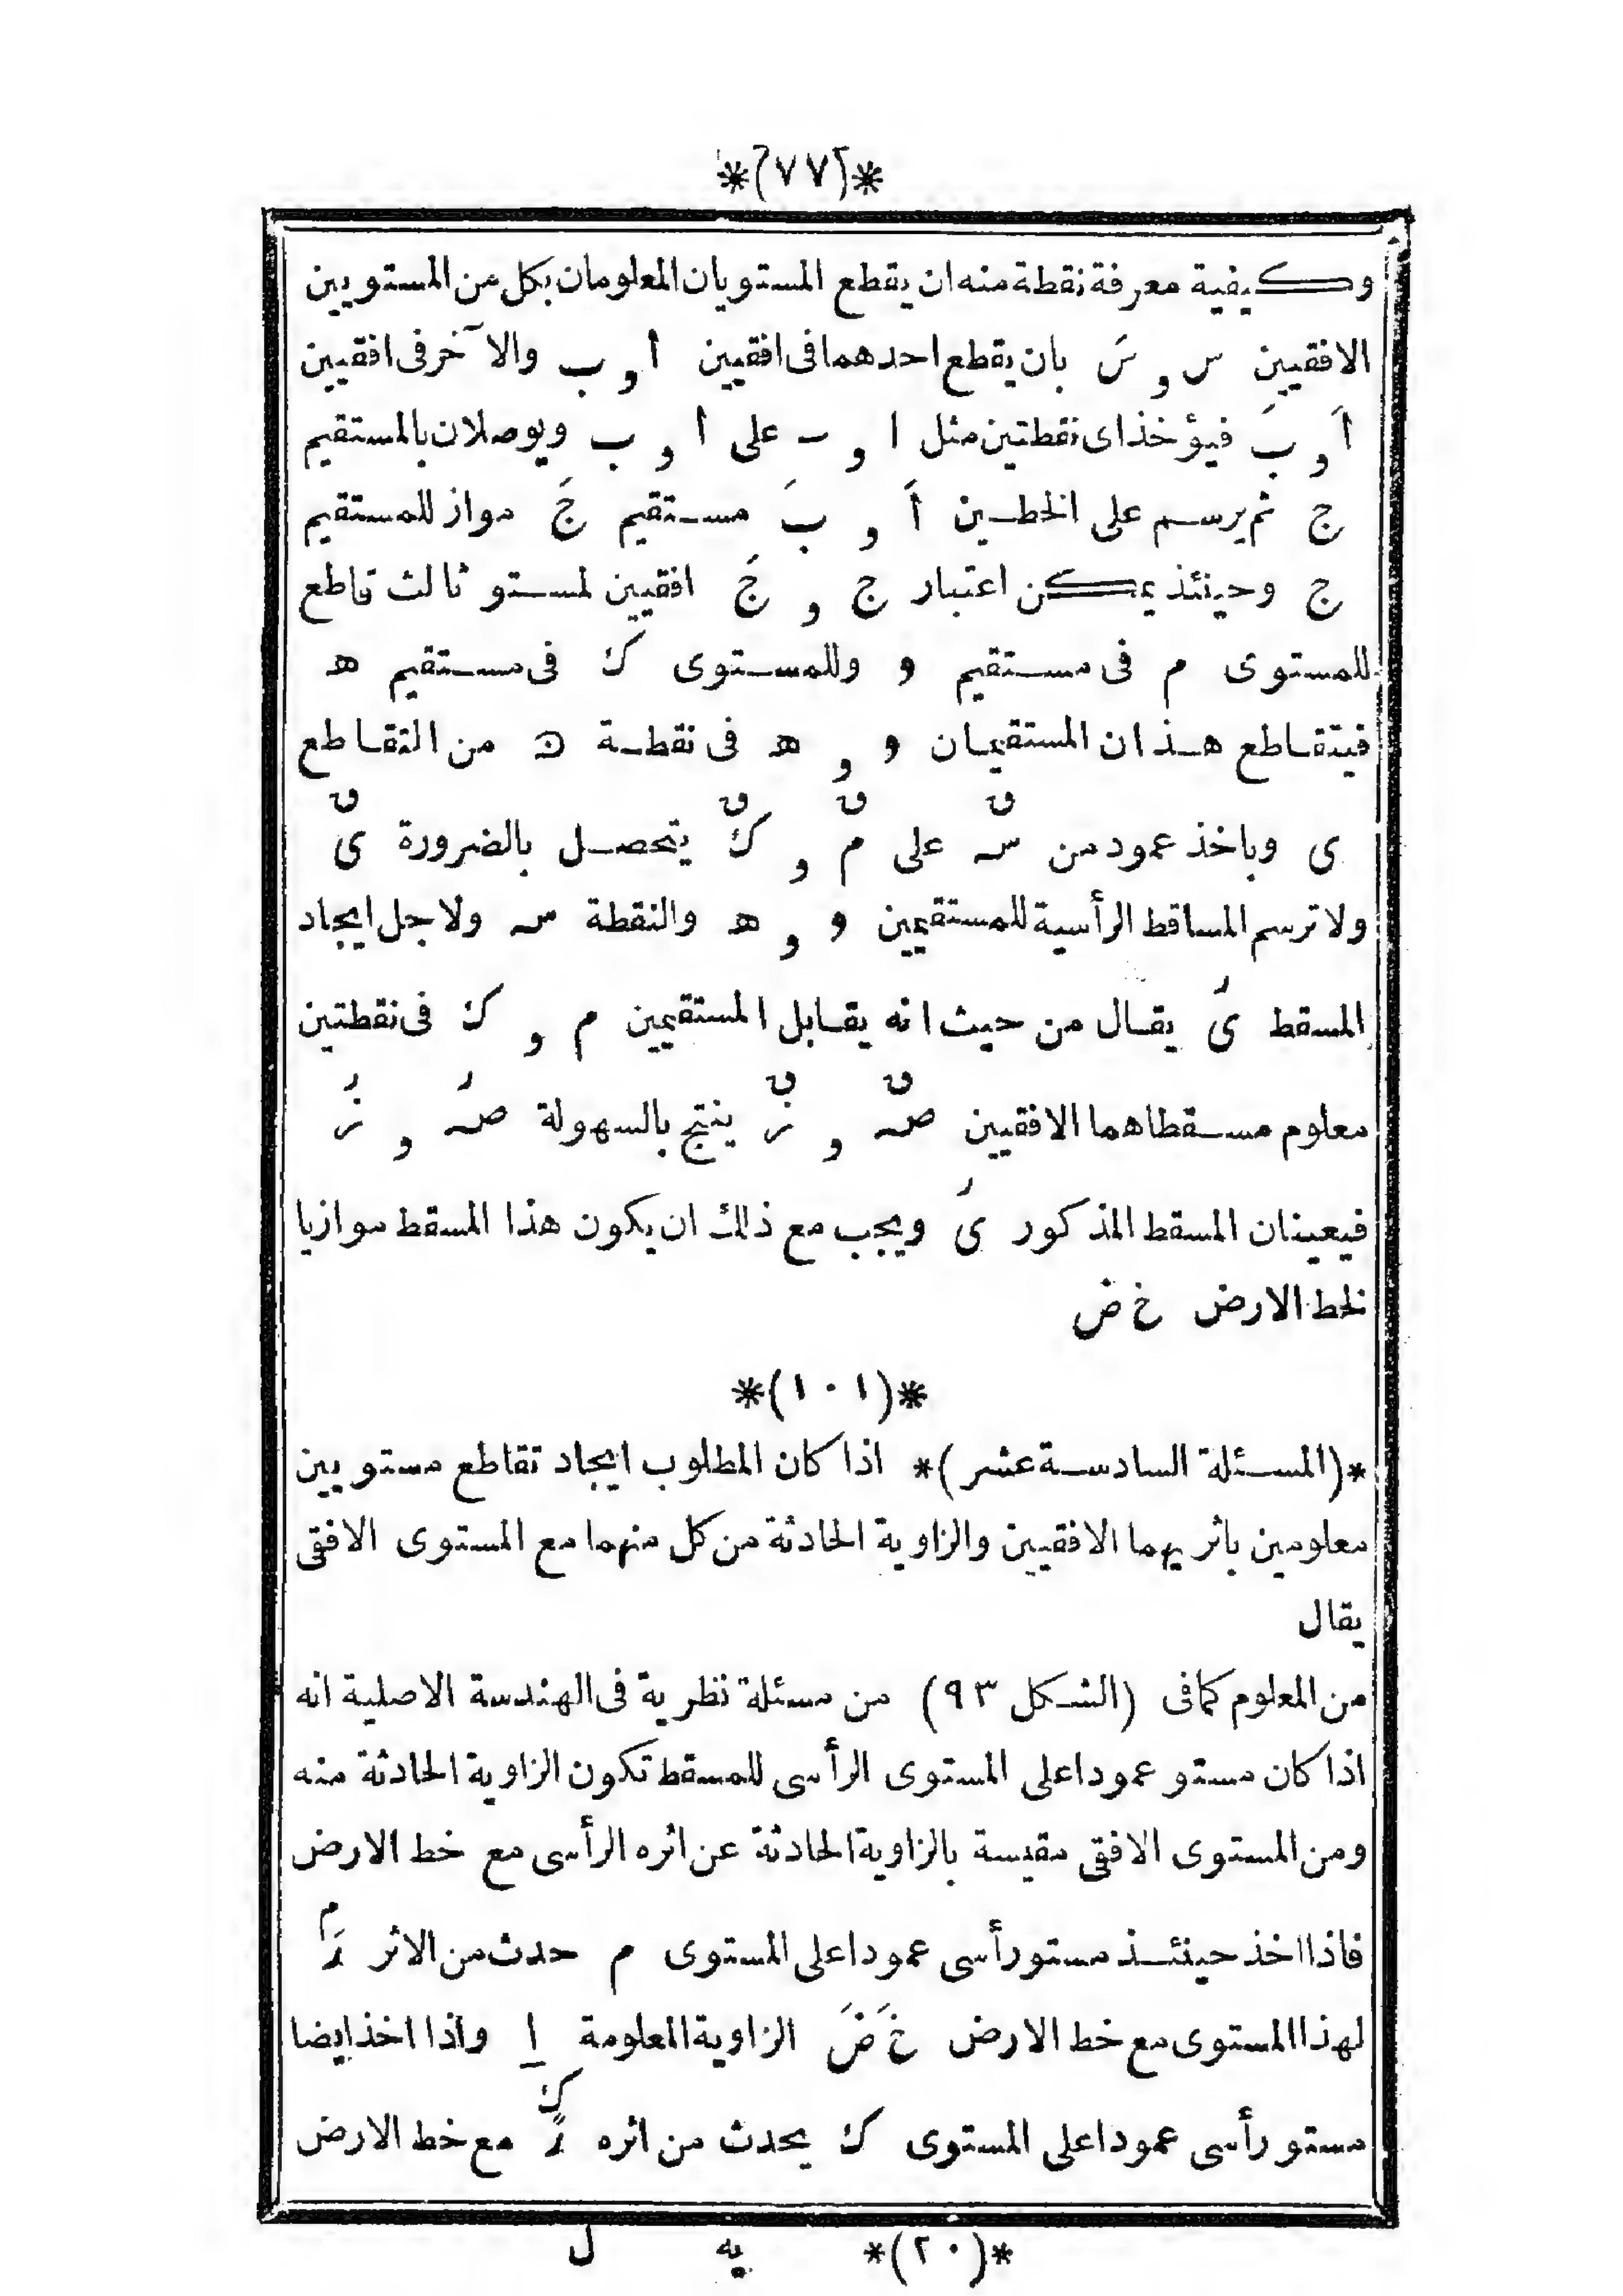 *(٧٧)*
وكيفية معرفة نقطة منه ان يقطع المستويان المعلومان بكل من المستويين
الافقيين س و سَ بان يقطع احدهما فى افقيين ا و ب والاآخر فى افقيين
اَ و بَ فيؤخذ اى نقطتين مثل ا و ٮ على ا و ب ويوصلان بالمستقيم
ج ثم يرسم على الخطين اَ و بَ مستقيم جَ مواز للمستقيم
ج وحينئذ يمكن اعتبار ج و جَ افقيين لمستو ثالث قاطع
للمستوى م فى مستقيم و وللمستوى ك فى مستقيم ه
فيتقاطع هذان المستقيمان و و ه فى نقطة ن من التقاطع
ى وباخذ عمود من سـ على م و ك يتحصل بالضرورة ى
ولا ترسم المساقط الرأسية للمستقيمين و و ه والنقطة سـ ولاجل ايجاد
المسقط ىَ يقال من حيث انه يقابل المستقيمين م و ك فى نقطتين
معلوم مسقطاهما الافقيين صـ و ز ينتج بالسهولة صـَ و زَ
فيعينان المسقط المذكور ىَ ويجب مع ذلك ان يكون هذا المسقط موازيا
لخط الارض خ ض
*(١٠١)*
*(المسئلة السادسة عشر)* اذا كان المطلوب ايجاد تقاطع مستويين
معلومين باثريهما الافقيين والزاوية الحادثة من كل منهما مع المستوى الافقى
يقال
من المعلوم كمافى (الشكل ٩٣) من مسئلة نظرية فى الهندسة الاصلية انه
اذا كان مستو عمودا على المستوى الرأسى للمسقط تكون الزاوية الحادثة منه
ومن المستوى الافقى مقيسة بالزاوية الحادثة عن اثره الرأسى مع خط الارض
فاذا اخذ حينئذ مستو رأسى عمودا على المستوى م حدث من الاثر رَم
لهذا المستوى مع خط الارض خَ ضَ الزاوية المعلومة ا واذا اخذ ايضا
مستو رأسى عمودا على المستوى ك يحدث من اثره رً ك مع خط الارض
*(٢٠)* يه ل